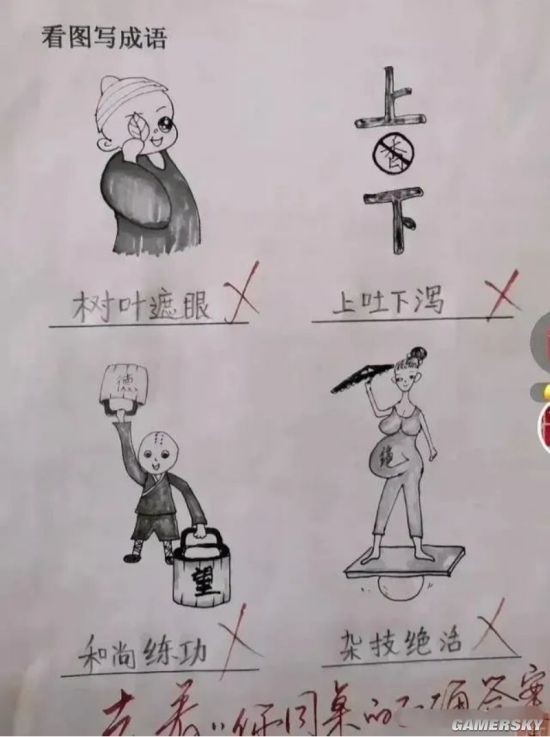 看图写成语
上
香
下
树叶遮眼
上吐下泻
德
望
绝
和尚练功
杂技绝活
去看你同桌的正确答案
GAMERSKY